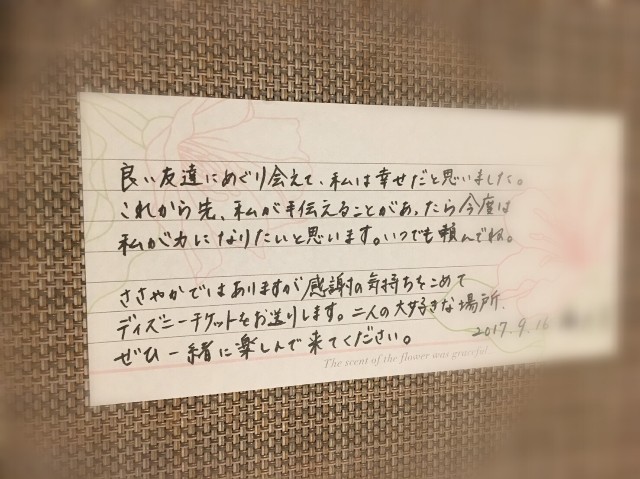 良い友達にめぐり会えて、私は幸せだと思いました。
これから先、私が手伝えることがあったら今度は
私が力になりたいと思います。いつでも頼んでね。
ささやかではありますが感謝の気持ちをこめて
ディズニーチケットをお送りします。二人の大好きな場所、
ぜひ一緒に楽しんで来てください。
2017.9.16
The scent of the flower was graceful